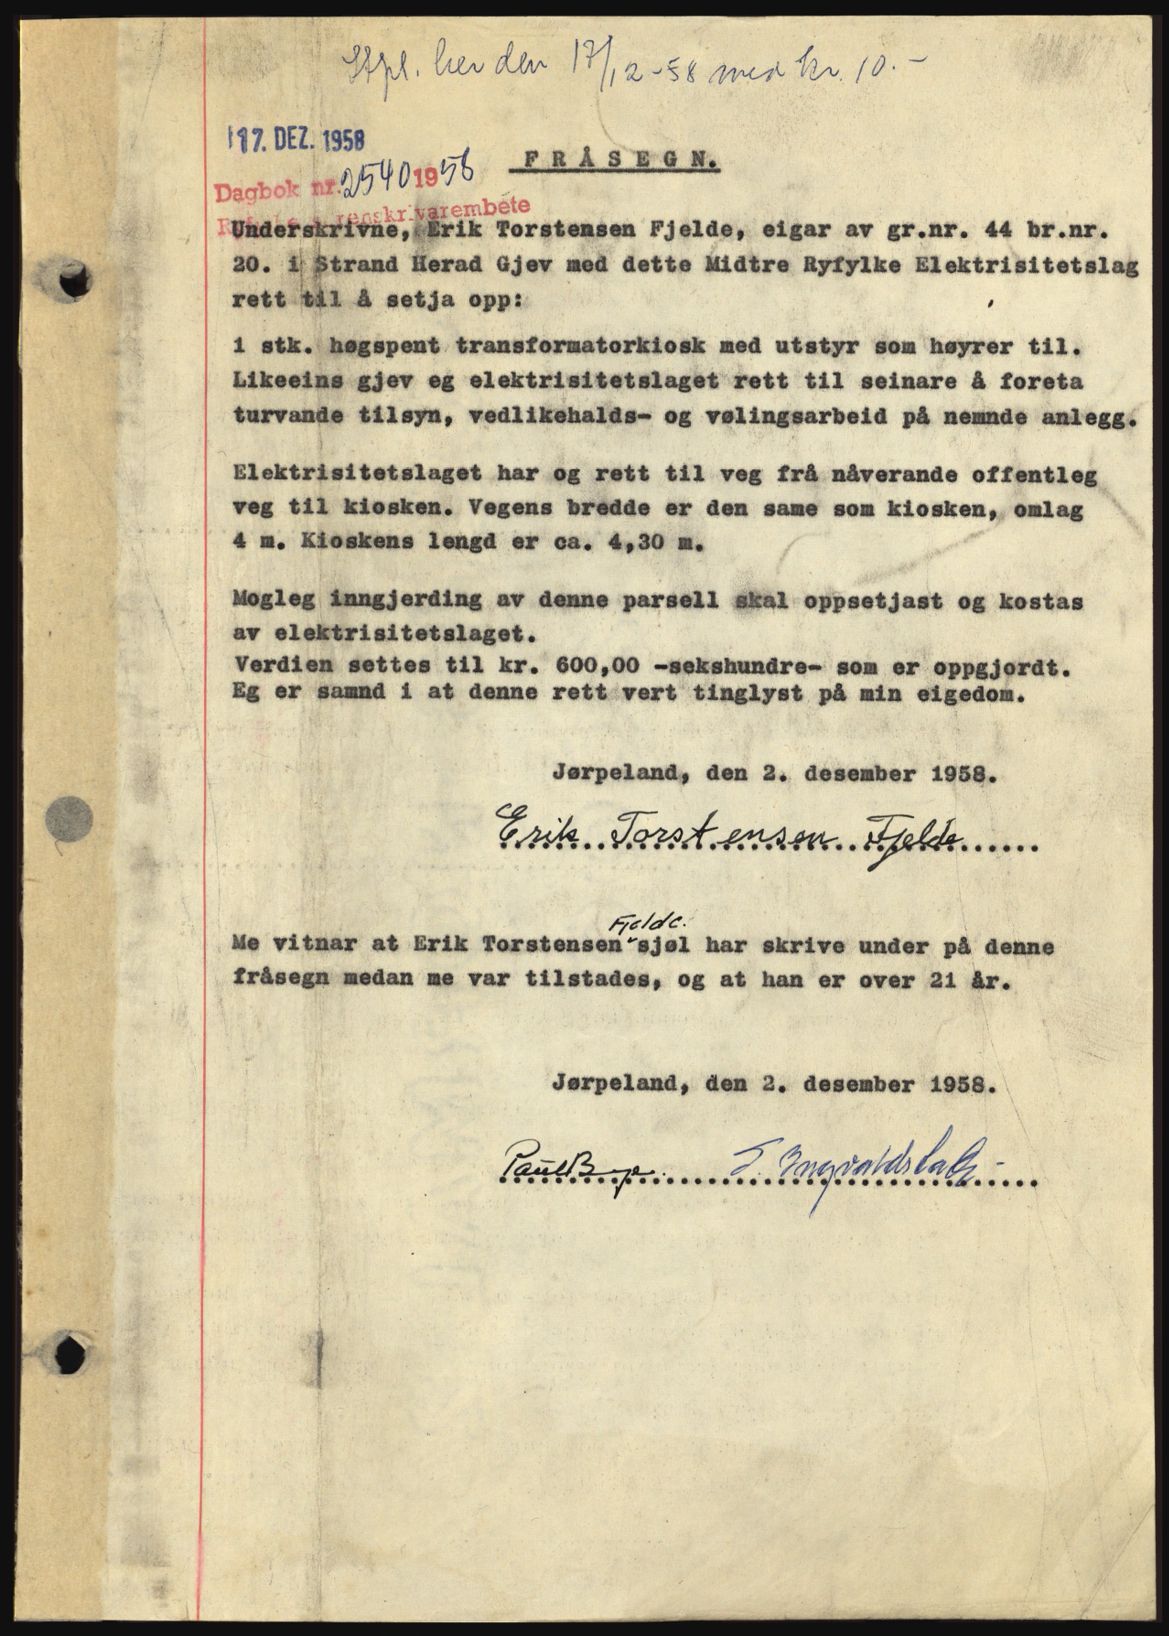 Stpl. her den 17/12-58 med kr. 10.-
17. DEZ. 1958
FRÅSEGN.
Dagbok nr. 2540 1958
Ryfylke sorenskrivarembete
Underskrivne, Erik Torstensen Fjelde, eigar av gr.nr. 44 br.nr.
20. i Strand Herad Gjev med dette Midtre Ryfylke Elektrisitetslag
rett til å setja opp:
1 stk. høgspent transformatorkiosk med utstyr som høyrer til.
Likeeins gjev eg elektrisitetslaget rett til seinare å foreta
turvande tilsyn, vedlikehalds- og vølingsarbeid på nemnde anlegg.
Elektrisitetslaget har og rett til veg frå nåverande offentleg
veg til kiosken. Vegens bredde er den same som kiosken, omlag
4 m. Kioskens lengd er ca. 4,30 m.
Mogleg inngjerding av denne parsell skal oppsetjast og kostas
av elektrisitetslaget.
Verdien settes til kr. 600,00 -sekshundre- som er oppgjordt.
Eg er samnd i at denne rett vert tinglyst på min eigedom.
Jørpeland, den 2. desember 1958.
Erik Torstensen Fjelde
Fjelde.
Me vitnar at Erik Torstensen sjøl har skrive under på denne
fråsegn medan me var tilstades, og at han er over 21 år.
Jørpeland, den 2. desember 1958.
Paul